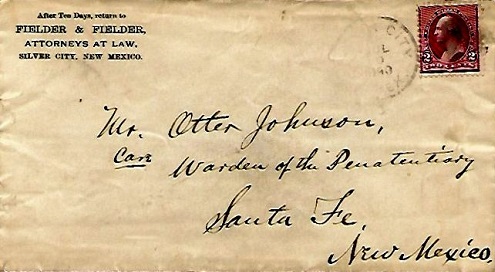 After Ten Days, return to
FIELDER & FIELDER,
ATTORNEYS AT LAW,
SILVER CITY, NEW MEXICO.
2 2
TWO CENTS
Mr. Otter Johnson,
Care Warden of the Penatentiary
Santa Fe,
New Mexico.